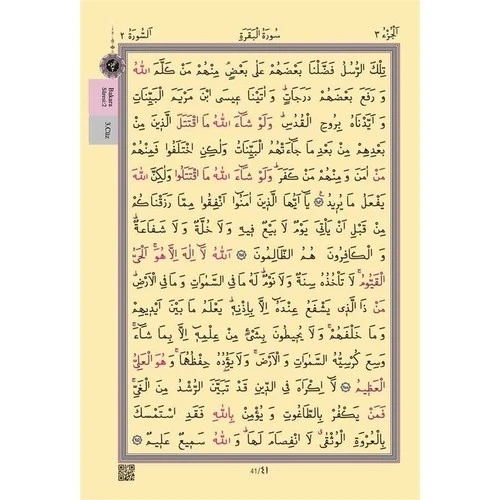 اَلْجُزْءُ ٣ سُورَةُ الْبَقَرَةِ اَلسُّورَةُ ٢
تِلْكَ الرُّسُلُ فَضَّلْنَا بَعْضَهُمْ عَلٰى بَعْضٍ مِنْهُمْ مَنْ كَلَّمَ اللّٰهُ
وَرَفَعَ بَعْضَهُمْ دَرَجَاتٍ وَاٰتَيْنَا عِيسَى ابْنَ مَرْيَمَ الْبَيِّنَاتِ
وَاَيَّدْنَاهُ بِرُوحِ الْقُدُسِ وَلَوْ شَٓاءَ اللّٰهُ مَا اقْتَتَلَ الَّذِينَ مِنْ
بَعْدِهِمْ مِنْ بَعْدِ مَا جَٓاءَتْهُمُ الْبَيِّنَاتُ وَلٰكِنِ اخْتَلَفُوا فَمِنْهُمْ
مَنْ اٰمَنَ وَمِنْهُمْ مَنْ كَفَرَ وَلَوْ شَٓاءَ اللّٰهُ مَا اقْتَتَلُوا وَلٰكِنَّ اللّٰهَ
يَفْعَلُ مَا يُرِيدُ يَٓا اَيُّهَا الَّذِينَ اٰمَنُٓوا اَنْفِقُوا مِمَّا رَزَقْنَاكُمْ
مِنْ قَبْلِ اَنْ يَأْتِيَ يَوْمٌ لَا بَيْعٌ فِيهِ وَلَا خُلَّةٌ وَلَا شَفَاعَةٌ
وَالْكَافِرُونَ هُمُ الظَّالِمُونَ اَللّٰهُ لَٓا اِلٰهَ اِلَّا هُوَ اَلْحَيُّ
الْقَيُّومُ لَا تَأْخُذُهُ سِنَةٌ وَلَا نَوْمٌ لَهُ مَا فِي السَّمٰوَاتِ وَمَا فِي الْاَرْضِ
مَنْ ذَا الَّذِي يَشْفَعُ عِنْدَهُٓ اِلَّا بِاِذْنِهِ يَعْلَمُ مَا بَيْنَ اَيْدِيهِمْ
وَمَا خَلْفَهُمْ وَلَا يُحِيطُونَ بِشَيْءٍ مِنْ عِلْمِهِٓ اِلَّا بِمَا شَٓاءَ
وَسِعَ كُرْسِيُّهُ السَّمٰوَاتِ وَالْاَرْضَ وَلَا يَؤُدُهُ حِفْظُهُمَا وَهُوَ الْعَلِيُّ
الْعَظِيمُ لَٓا اِكْرَاهَ فِي الدِّينِ قَدْ تَبَيَّنَ الرُّشْدُ مِنَ الْغَيِّ
فَمَنْ يَكْفُرْ بِالطَّاغُوتِ وَيُؤْمِنْ بِاللّٰهِ فَقَدِ اسْتَمْسَكَ
بِالْعُرْوَةِ الْوُثْقٰى لَا انْفِصَامَ لَهَا وَاللّٰهُ سَمِيعٌ عَلِيمٌ
41/٤١
Bakara
Sûresi:2
3.Cüz